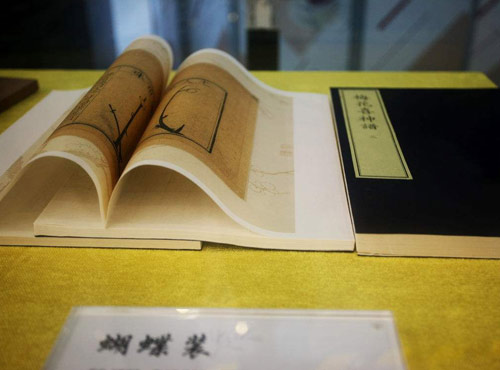 梅花喜神譜
蝴蝶装